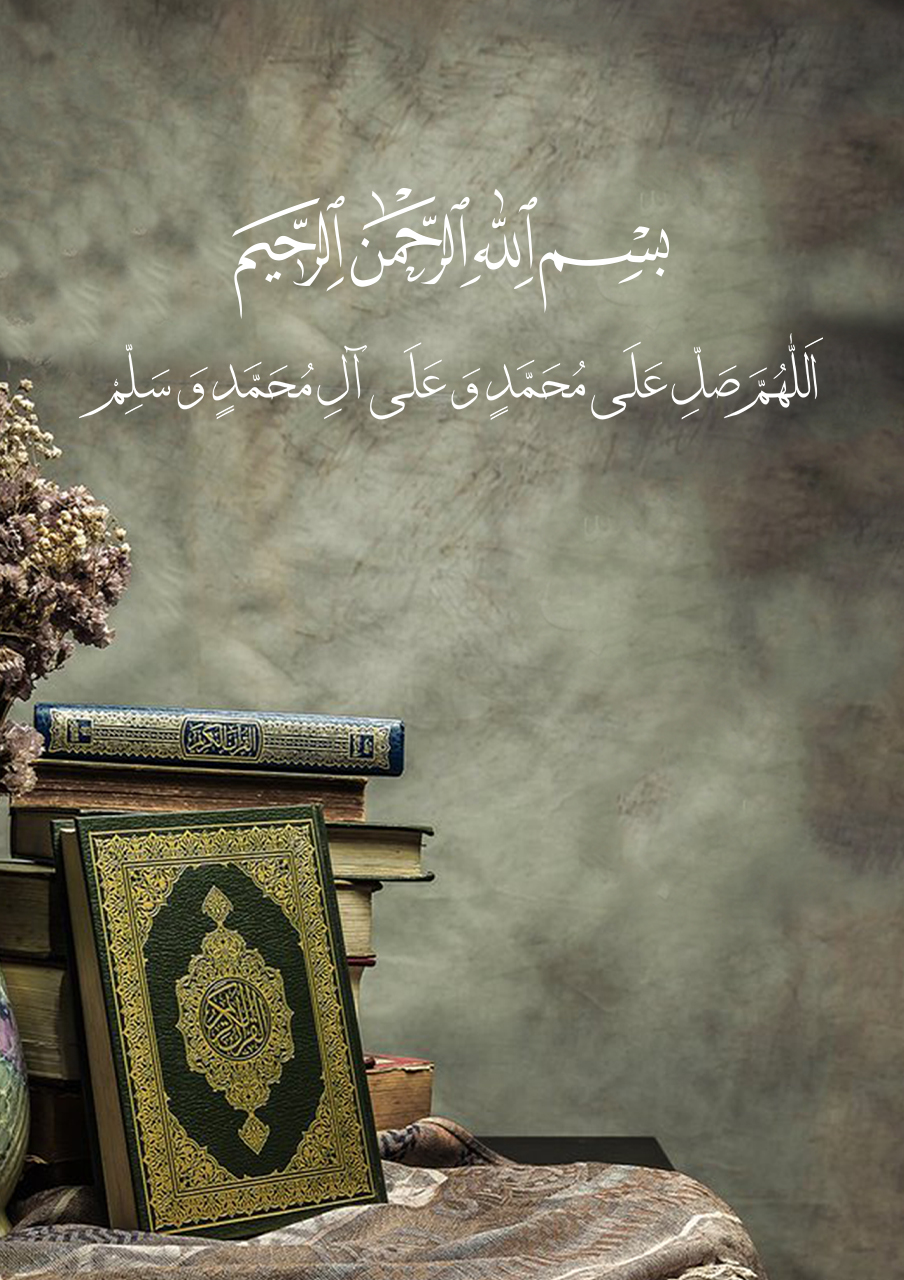 بِسْمِ ٱللَّٰهِ ٱلرَّحْمَٰنِ ٱلرَّحِيمِ
اَللّٰهُمَّ صَلِّ عَلَى مُحَمَّدٍ وَ عَلَى آلِ مُحَمَّدٍ وَ سَلِّمْ
القرآن الكريم
القرآن الكريم